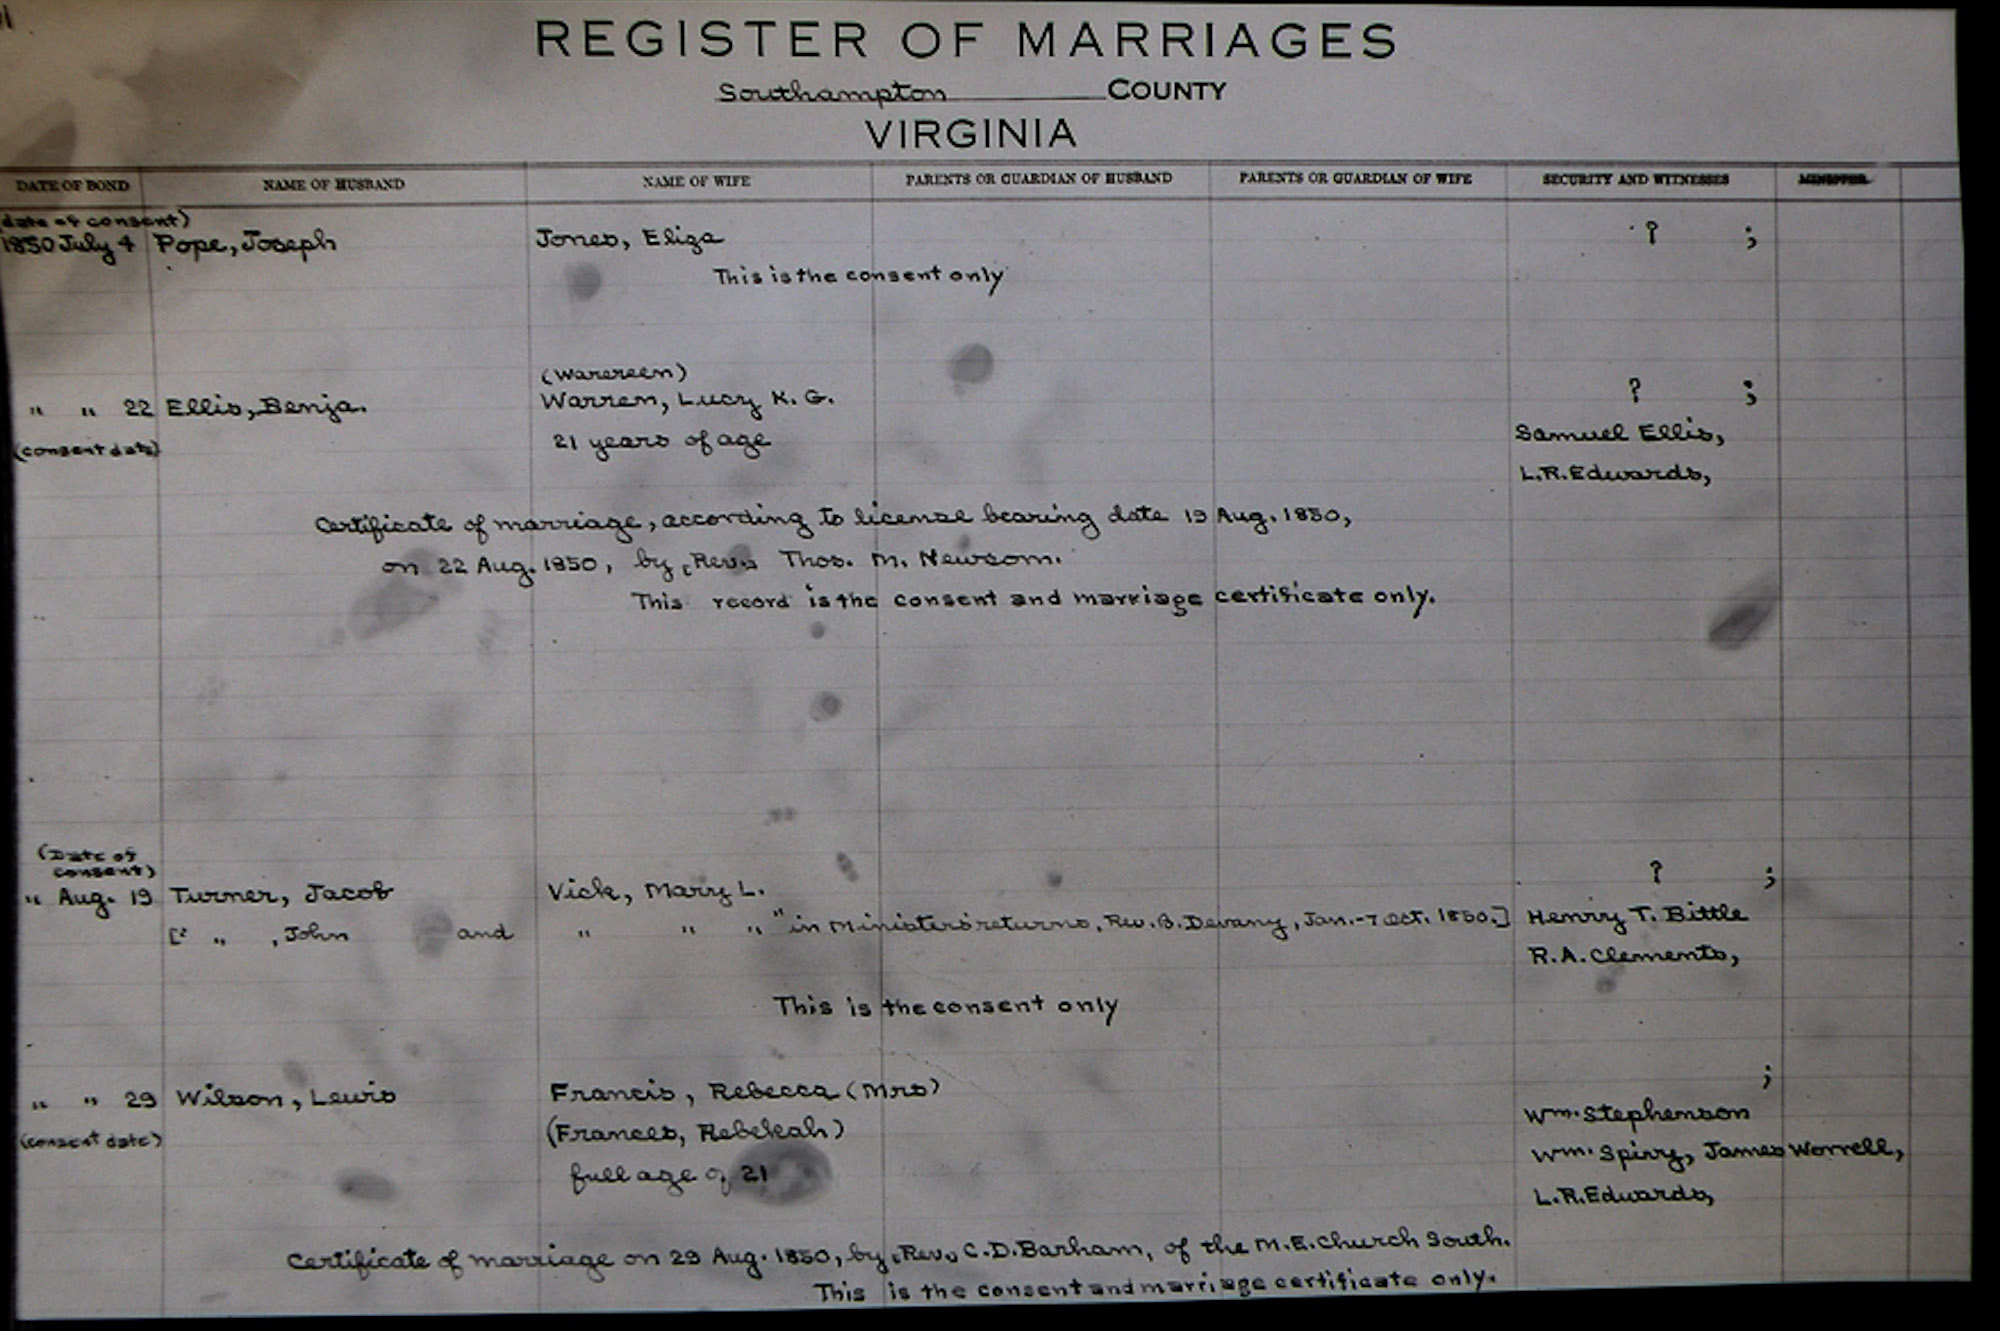 REGISTER OF MARRIAGES
Southampton COUNTY
VIRGINIA
DATE OF BOND NAME OF HUSBAND NAME OF WIFE PARENTS OR GUARDIAN OF HUSBAND PARENTS OR GUARDIAN OF WIFE SECURITY AND WITNESSES MINISTER
(date of consent)
1850 July 4 Pope, Joseph Jones, Eliza ? ;
This is the consent only
(Warereen)
" " 22 Ellis, Benja. Warren, Lucy K. G. ? ;
(consent date) 21 years of age Samuel Ellis,
L.R. Edwards,
Certificate of marriage, according to license bearing date 19 Aug. 1850,
on 22 Aug. 1850, by [Rev.] Thos. M. Newsom.
This record is the consent and marriage certificate only.
(Date of
consent)
" Aug. 19 Turner, Jacob Vick, Mary L. ? ;
[" " , John and " " " " in Ministers' returns, Rev. B. Devany, Jan.-7 Oct. 1850.] Henry T. Bittle
R.A. Clements,
This is the consent only
" " 29 Wilson, Lewis Francis, Rebecca (Mrs) ;
(consent date) (Frances, Rebekah) Wm. Stephenson
full age of 21 Wm. Spivy, James Worrell,
L.R. Edwards,
Certificate of marriage on 29 Aug. 1850, by [Rev.] C.D. Barham, of the M.E. Church South.
This is the consent and marriage certificate only.